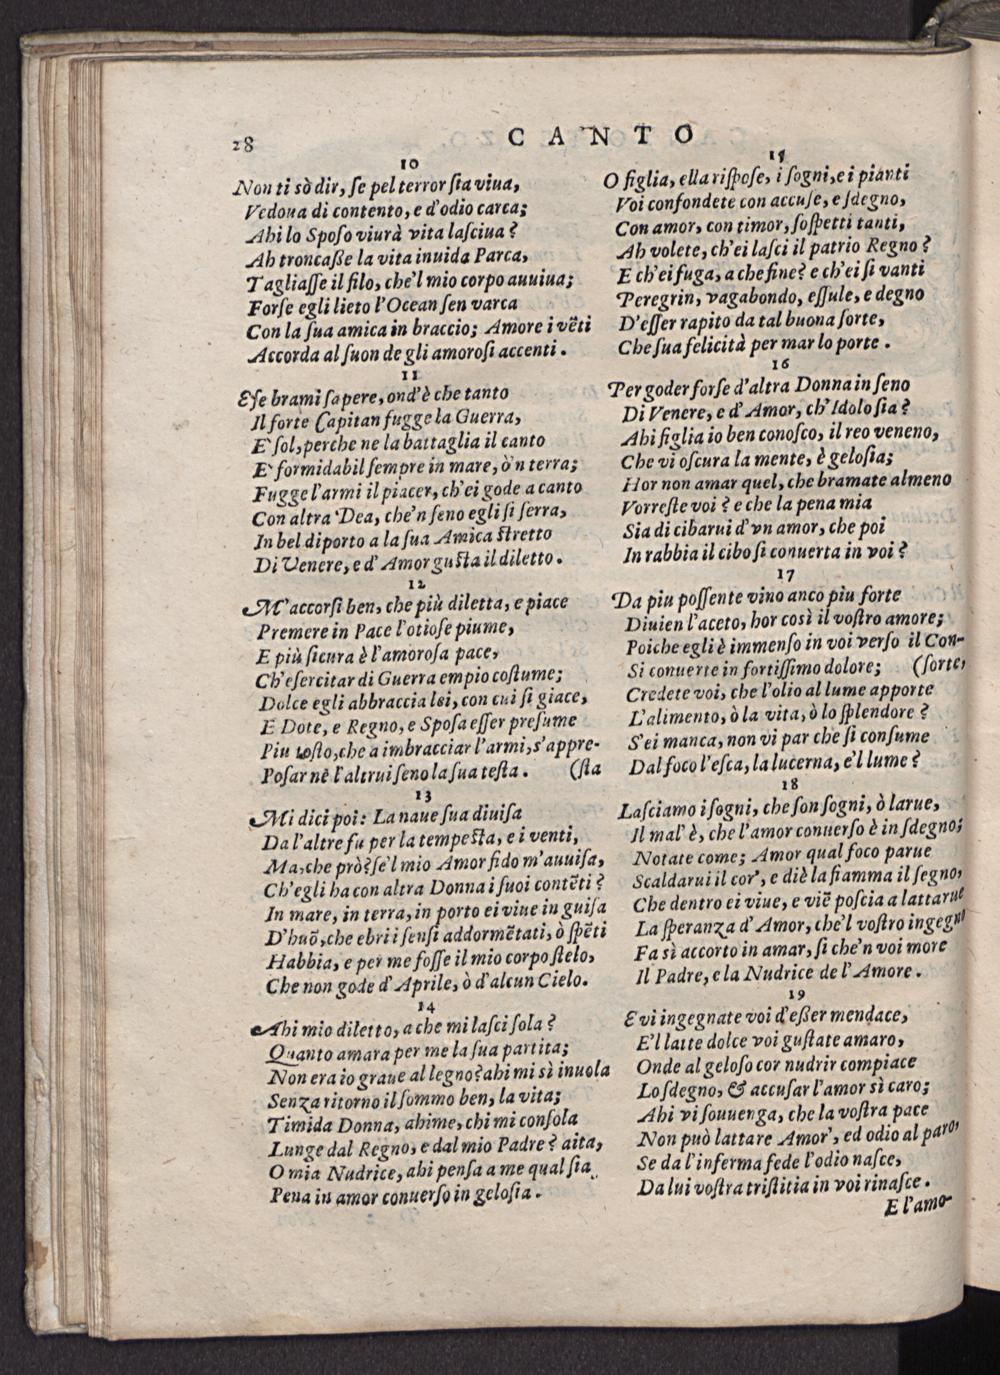 28
CANTO
10
Non ti sò dir, ſe pel terror ſia viua,
Vedoua di contento, e d'odio carca;
Ahi lo Spoſo viurà vita laſciua?
Ah troncaſſe la vita inuida Parca,
Tagliaſſe il filo, che'l mio corpo auuiua;
Forſe egli lieto l'Ocean ſen varca
Con la ſua amica in braccio; Amore i vẽti
Accorda al ſuon de gli amoroſi accenti.
11
E ſe brami ſapere, ond'è che tanto
Il forte Capitan fugge la Guerra,
E' ſol, perche ne la battaglia il canto
E' formidabil ſempre in mare, ò'n terra;
Fugge l'armi il piacer, ch'ei gode a canto
Con altra Dea, che'n ſeno egli ſi ſerra,
In bel diporto a la ſua Amica ſtretto
Di Venere, e d'Amor guſta il diletto.
12
M'accorſi ben, che più diletta, e piace
Premere in Pace l'otioſe piume,
E più ſicura è l'amoroſa pace,
Ch'eſercitar di Guerra empio coſtume;
Dolce egli abbraccia lei, con cui ſi giace,
E Dote, e Regno, e Spoſa eſſer preſume
Piu toſto, che a imbracciar l'armi, s'appre-
Poſar nè l'altrui ſeno la ſua teſta. (ſta
13
Mi dici poi: La naue ſua diuiſa
Da l'altre fu per la tempeſta, e i venti,
Ma, che prò? ſe'l mio Amor fido m'auuiſa,
Ch'egli ha con altra Donna i ſuoi contẽti?
In mare, in terra, in porto ei viue in guiſa
D'huõ, che ebrii i ſenſi addormẽtati, ò ſpẽti
Habbia, e per me foſſe il mio corpo ſtelo,
Che non gode d'Aprile, ò d'alcun Cielo.
14
Ahi mio diletto, a che mi laſci ſola?
Quanto amara per me la ſua partita;
Non era io graue al legno? ahi mi sì inuola
Senza ritorno il ſommo ben, la vita;
Timida Donna, ahime, chi mi conſola
Lunge dal Regno, e dal mio Padre? aita,
O mia Nudrice, ahi penſa a me qual ſia
Pena in amor conuerſo in geloſia.
15
O figlia, ella riſpoſe, i ſogni, e i pianti
Voi confondete con accuſe, e ſdegno,
Con amor, con timor, ſoſpetti tanti,
Ah volete, ch'ei laſci il patrio Regno?
E ch'ei fuga, a che fine? e ch'ei ſi vanti
Peregrin, vagabondo, eſſule, e degno
D'eſſer rapito da tal buona ſorte,
Che ſua felicità per mar lo porte.
16
Per goder forſe d'altra Donna in ſeno
Di Venere, e d'Amor, ch'Idolo ſia?
Ahi figlia io ben conoſco, il reo veneno,
Che vi oſcura la mente, è geloſia;
Hor non amar quel, che bramate almeno
Vorreſte voi? e che la pena mia
Sia di cibarui d'vn amor, che poi
In rabbia il cibo ſi conuerta in voi?
17
Da piu poſſente vino anco più forte
Diuien l'aceto, hor così il voſtro amore;
Poiche egli è immenſo in voi verſo il Con-
Si conuerte in fortiſſimo dolore; (ſorte,
Credete voi, che l'olio al lume apporte
L'alimento, ò la vita, ò lo ſplendore?
S'ei manca, non vi par che ſi conſume
Dal foco l'eſca, la lucerna, e'l lume?
18
Laſciamo i ſogni, che ſon ſogni, ò larue,
Il mal' è, che l'amor conuerſo è in ſdegno;
Notate come; Amor qual foco parue
Scaldarui il cor', e diè la fiamma il ſegno,
Che dentro ei viue, e viẽ poſcia a lattarue
La ſperanza d'Amor, che'l voſtro ingegno
Fa sì accorto in amar, ſi che'n voi more
Il Padre, e la Nudrice de l'Amore.
19
E vi ingegnate voi d'eſſer mendace,
E'l latte dolce voi guſtate amaro,
Onde al geloſo cor nudrir compiace
Lo ſdegno, & accuſar l'amor sì caro;
Ahi vi ſouuenga, che la voſtra pace
Non può lattare Amor', ed odio al paro,
Se da l'inferma fede l'odio naſce,
Da lui voſtra triſtitia in voi rinaſce.
E l'amo-